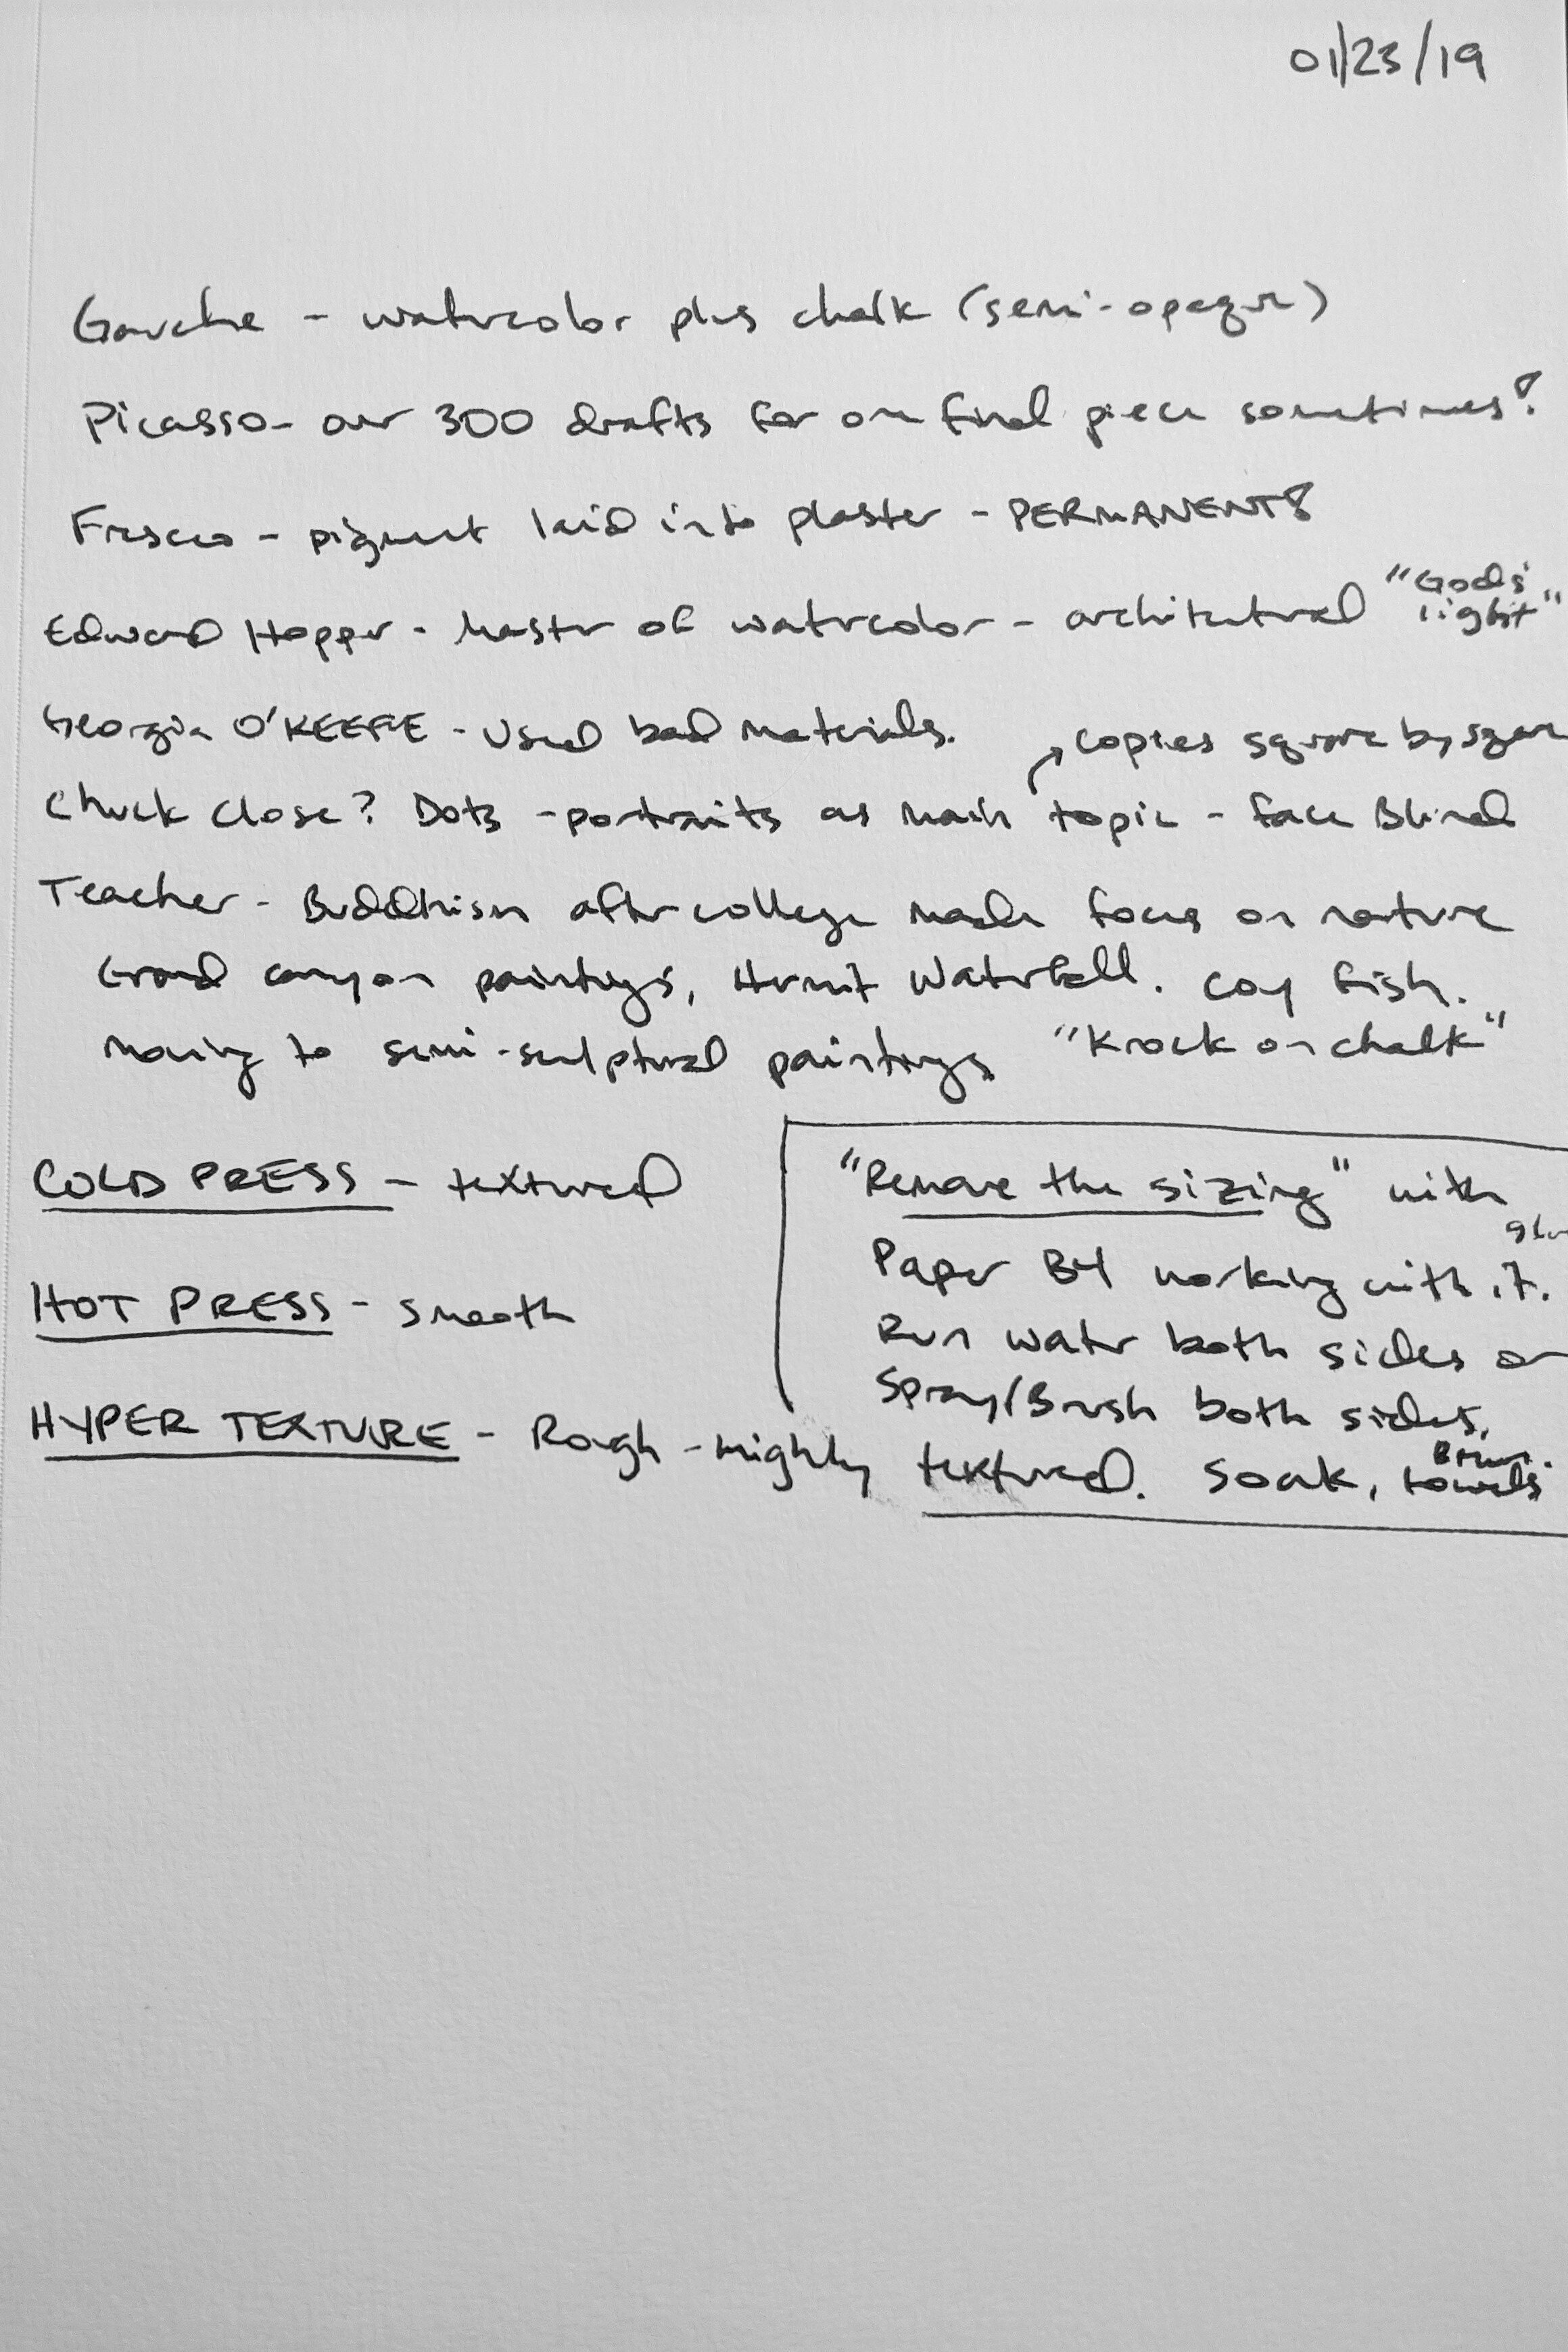 01/23/19
Gouche - watercolor plus chalk (semi-opaque)
Picasso - over 300 drafts for one final piece sometimes!
Fresco - pigment laid into plaster - PERMANENT!
Edward Hopper - Master of watercolor - architectural "Gods' light"
Georgia O'KEEFE - Used bad materials.
copies square by square
Chuck Close? Dots - portraits as main topic - face Blind
Teacher - Buddhism after college made focus on nature
Grand canyon paintings, Hermit Waterfall. Coy fish.
Moving to semi-sculptural paintings "Knock on chalk"
COLD PRESS - textured
HOT PRESS - smooth
HYPER TEXTURE - Rough - Highly textured.
"Remove the sizing" with
glue
Paper B4 working with it.
Run water both sides or
Spray/Brush both sides.
Soak, towels